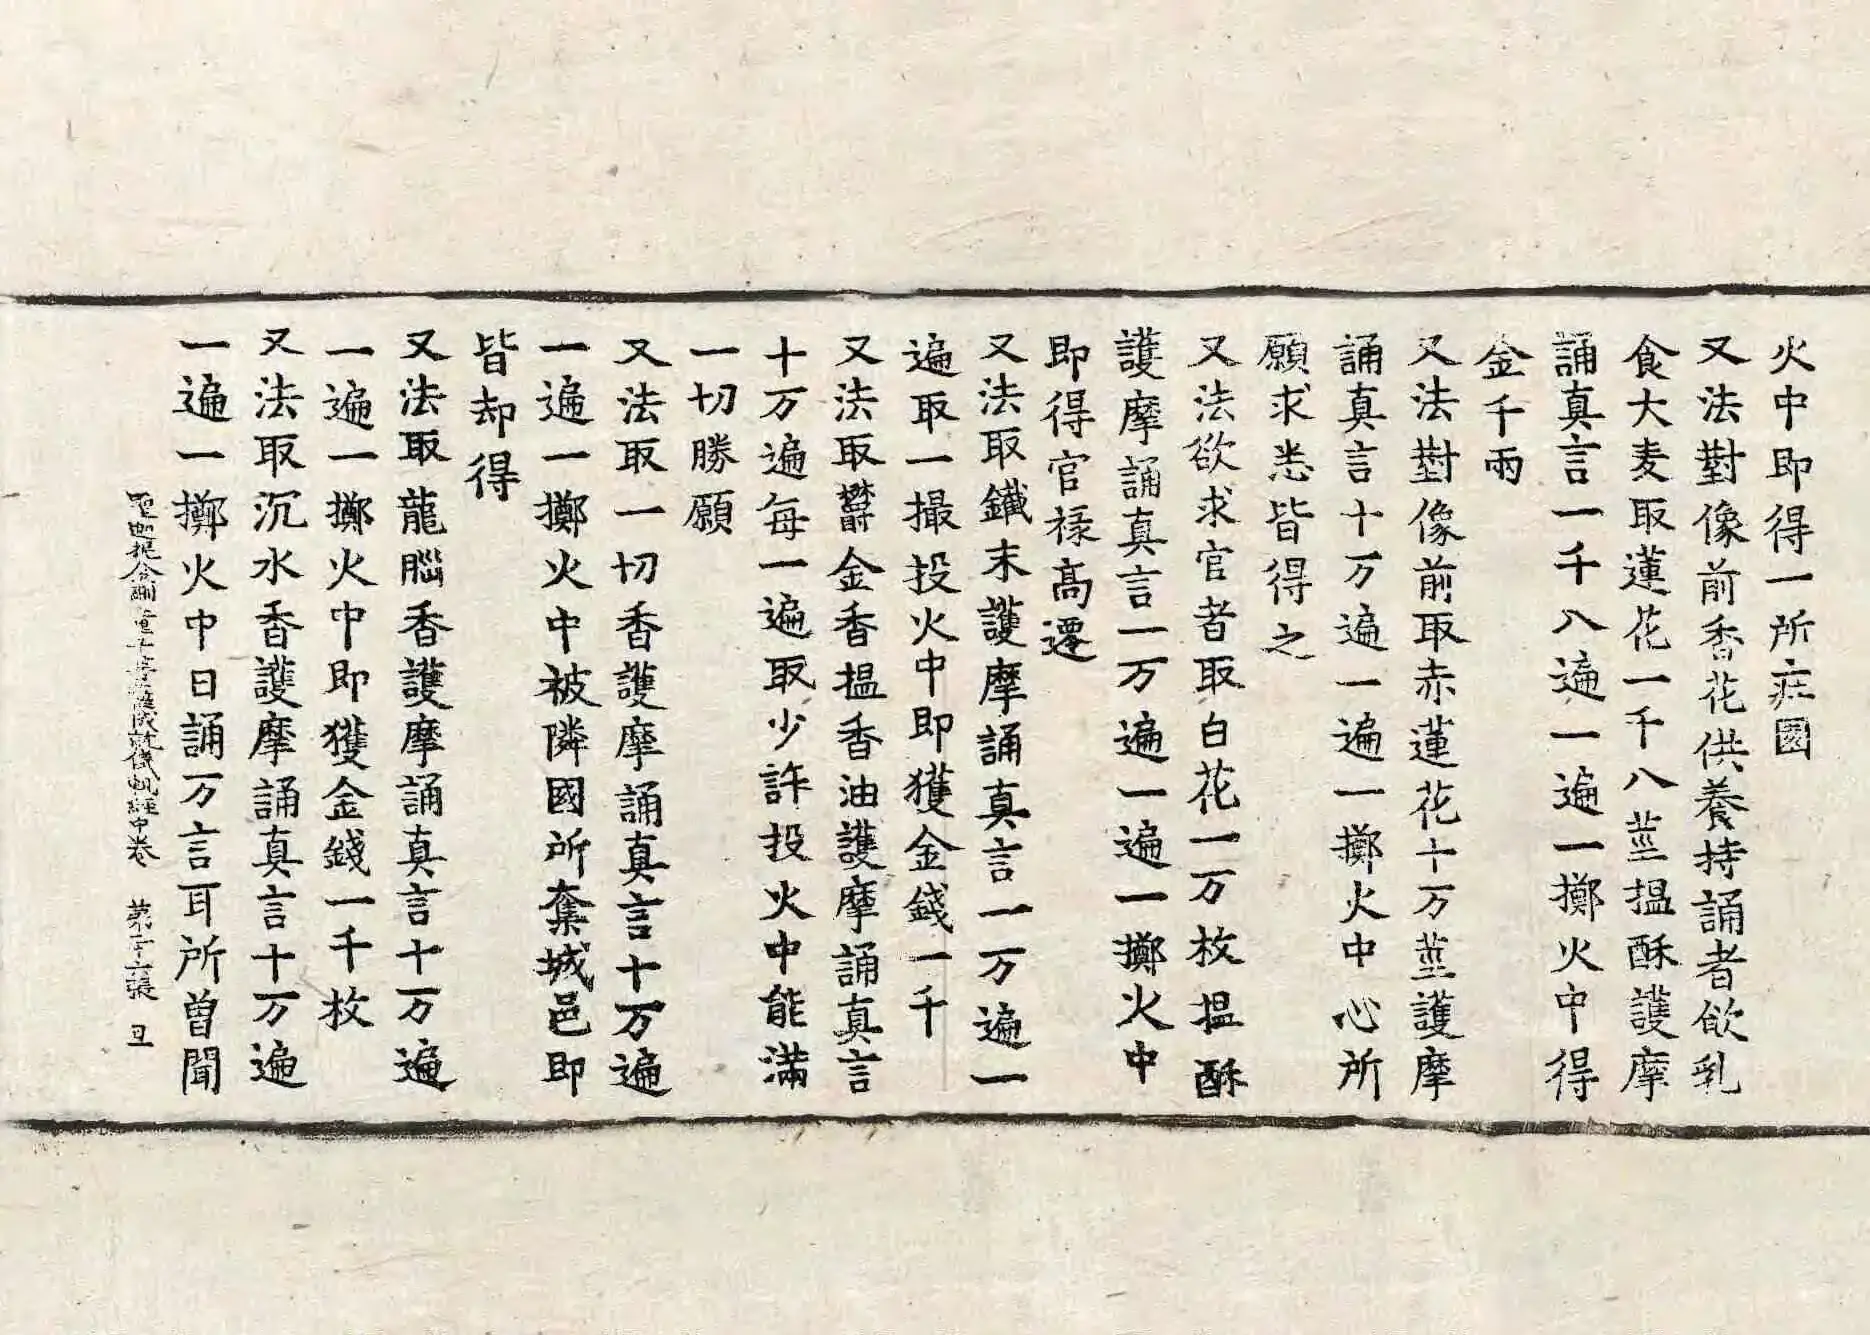 火中即得一所庄園
又法對像前香花供養持誦者欲乳
食大麦取蓮花一千八莖搵酥護摩
誦真言一千八遍一遍一擲火中得
金千兩
又法對像前取赤蓮花十万莖護摩
誦真言十万遍一遍一擲火中心所
願求悉皆得之
又法欲求官者取白花一万枚搵酥
護摩誦真言一万遍一遍一擲火中
即得官禄高遷
又法取鐵末護摩誦真言一万遍一
遍取一撮投火中即獲金錢一千
又法取欝金香搵香油護摩誦真言
十万遍每一遍取少許投火中能滿
一切勝願
又法取一切香護摩誦真言十万遍
一遍一擲火中被隣國所奪城邑即
皆却得
又法取龍腦香護摩誦真言十万遍
一遍一擲火中即獲金錢一千枚
又法取沉水香護摩誦真言十万遍
一遍一擲火中日誦万言耳所曽聞
聖迦抳忿怒童子菩薩成就儀軌經中卷 第 張 丑